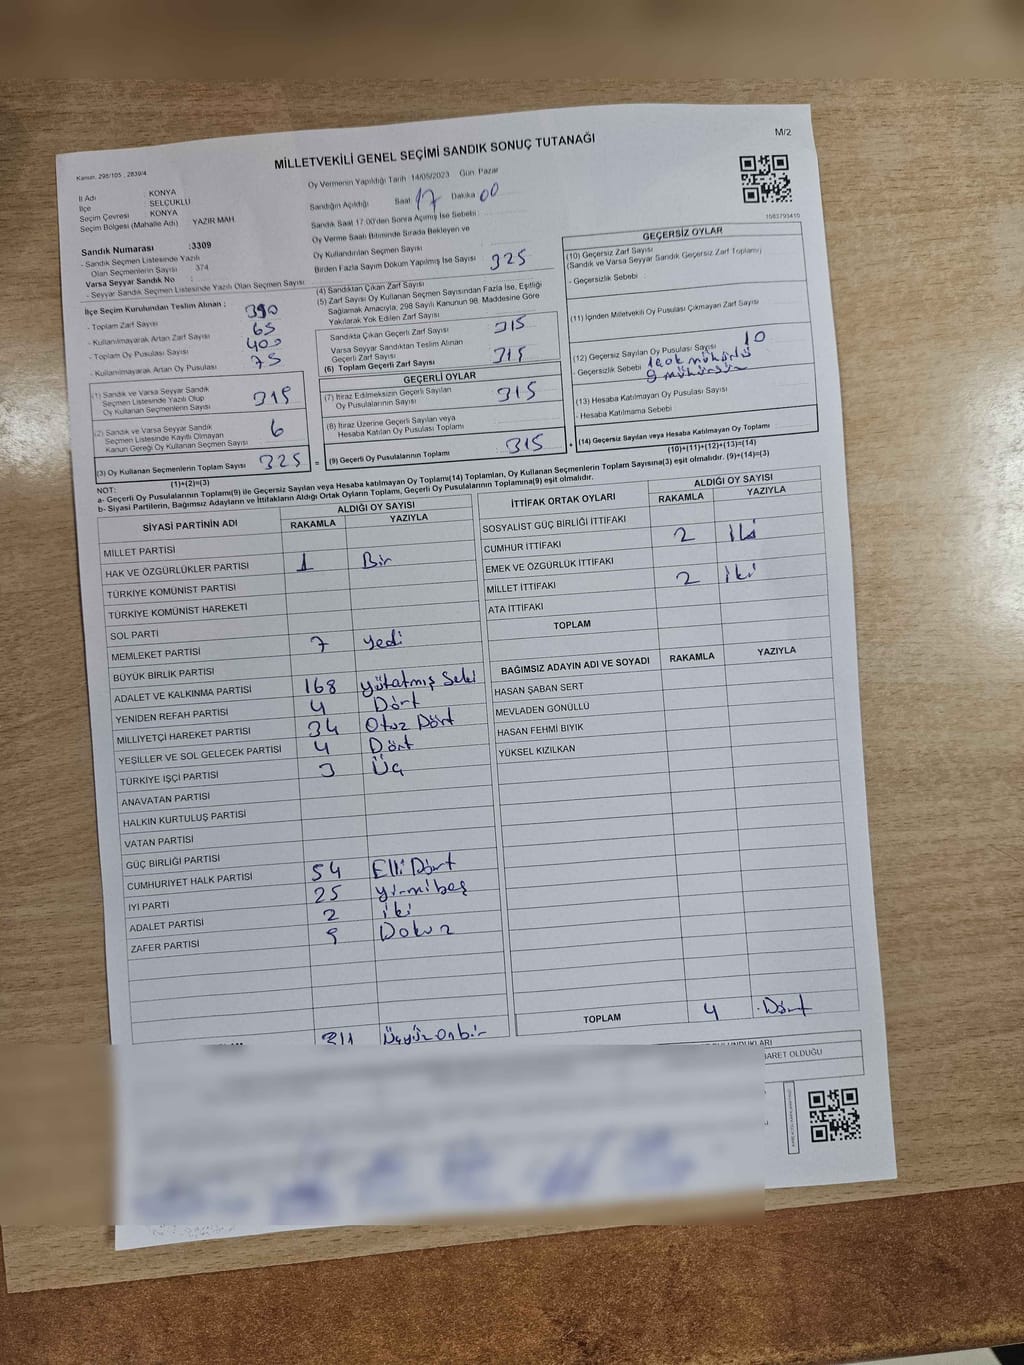 M/2
MİLLETVEKİLİ GENEL SEÇİMİ SANDIK SONUÇ TUTANAĞI
Kanun. 298/105 , 2839/4
İl Adı : KONYA
İlçe : SELÇUKLU
Seçim Çevresi : KONYA
Seçim Bölgesi (Mahalle Adı) : YAZIR MAH.
Sandık Numarası :3309
- Sandık Seçmen Listesinde Yazılı
Olan Seçmenlerin Sayısı : 374
Varsa Seyyar Sandık No :
- Seyyar Sandık Seçmen Listesinde Yazılı Olan Seçmen Sayısı
İlçe Seçim Kurulundan Teslim Alınan :
- Toplam Zarf Sayısı 390
- Kullanılmayarak Artan Zarf Sayısı 65
- Toplam Oy Pusulası Sayısı 400
- Kullanılmayarak Artan Oy Pusulası 75
(1) Sandık ve Varsa Seyyar Sandık
Seçmen Listesinde Yazılı Olup
Oy Kullanan Seçmenlerin Sayısı 319
(2) Sandık ve Varsa Seyyar Sandık
Seçmen Listesinde Kayıtlı Olmayan
Kanun Gereği Oy Kullanan Seçmen Sayısı 6
(3) Oy Kullanan Seçmenlerin Toplam Sayısı 325 =
(1)+(2)=(3)
Oy Vermenin Yapıldığı Tarih 14/05/2023 Gün. Pazar
Sandığın Açıldığı Saat 17 Dakika 00
Sandık Saat 17.00'den Sonra Açılmış İse Sebebi :
Oy Verme Saati Bitiminde Sırada Bekleyen ve
Oy Kullandırılan Seçmen Sayısı
Birden Fazla Sayım Döküm Yapılmış İse Sayısı
(4) Sandıktan Çıkan Zarf Sayısı 325
(5) Zarf Sayısı Oy Kullanan Seçmen Sayısından Fazla İse, Eşitliği
Sağlamak Amacıyla, 298 Sayılı Kanunun 98. Maddesine Göre
Yakılarak Yok Edilen Zarf Sayısı
Sandıkta Çıkan Geçerli Zarf Sayısı 315
Varsa Seyyar Sandıktan Teslim Alınan
Geçerli Zarf Sayısı
(6) Toplam Geçerli Zarf Sayısı 315
GEÇERLİ OYLAR
(7) İtiraz Edilmeksizin Geçerli Sayılan
Oy Pusulalarının Sayısı 315
(8) İtiraz Üzerine Geçerli Sayılan veya
Hesaba Katılan Oy Pusulası Toplamı
(9) Geçerli Oy Pusulalarının Toplamı 315 +
1083793410
GEÇERSİZ OYLAR
(10) Geçersiz Zarf Sayısı
(Sandık ve Varsa Seyyar Sandık Geçersiz Zarf Toplamı)
- Geçersizlik Sebebi :
(11) İçinden Milletvekili Oy Pusulası Çıkmayan Zarf Sayısı
(12) Geçersiz Sayılan Oy Pusulası Sayısı 10
- Geçersizlik Sebebi
(13) Hesaba Katılmayan Oy Pusulası Sayısı
- Hesaba Katılmama Sebebi
(14) Geçersiz Sayılan veya Hesaba Katılmayan Oy Toplamı
(10)+(11)+(12)+(13)=(14)
NOT:
a- Geçerli Oy Pusulalarının Toplamı(9) ile Geçersiz Sayılan veya Hesaba katılmayan Oy Toplamı(14) Toplamları, Oy Kullanan Seçmenlerin Toplam Sayısına(3) eşit olmalıdır. (9)+(14)=(3)
b- Siyasi Partilerin, Bağımsız Adayların ve İttifakların Aldığı Ortak Oyların Toplamı, Geçerli Oy Pusulalarının Toplamına(9) eşit olmalıdır.
SİYASİ PARTİNİN ADI ALDIĞI OY SAYISI
RAKAMLA YAZIYLA
MİLLET PARTİSİ
HAK VE ÖZGÜRLÜKLER PARTİSİ 1 Bir
TÜRKİYE KOMÜNİST PARTİSİ
TÜRKİYE KOMÜNİST HAREKETİ
SOL PARTİ
MEMLEKET PARTİSİ 7 Yedi
BÜYÜK BİRLİK PARTİSİ
ADALET VE KALKINMA PARTİSİ 168
YENİDEN REFAH PARTİSİ 4 Dört
MİLLİYETÇİ HAREKET PARTİSİ 34 Otuz Dört
YEŞİLLER VE SOL GELECEK PARTİSİ 4 Dört
TÜRKİYE İŞÇİ PARTİSİ 3 Üç
ANAVATAN PARTİSİ
HALKIN KURTULUŞ PARTİSİ
VATAN PARTİSİ
GÜÇ BİRLİĞİ PARTİSİ
CUMHURİYET HALK PARTİSİ 54 Elli Dört
İYİ PARTİ 25 yirmibeş
ADALET PARTİSİ 2 iki
ZAFER PARTİSİ 9 Dokuz
311 Üçyüz Onbir
İTTİFAK ORTAK OYLARI ALDIĞI OY SAYISI
RAKAMLA YAZIYLA
SOSYALİST GÜÇ BİRLİĞİ İTTİFAKI
CUMHUR İTTİFAKI 2 iki
EMEK VE ÖZGÜRLÜK İTTİFAKI
MİLLET İTTİFAKI 2 iki
ATA İTTİFAKI
TOPLAM
BAĞIMSIZ ADAYIN ADI VE SOYADI RAKAMLA YAZIYLA
HASAN ŞABAN SERT
MEVLADEN GÖNÜLLÜ
HASAN FEHMİ BIYIK
YÜKSEL KIZILKAN
TOPLAM 4 Dört
BARET OLDUĞU